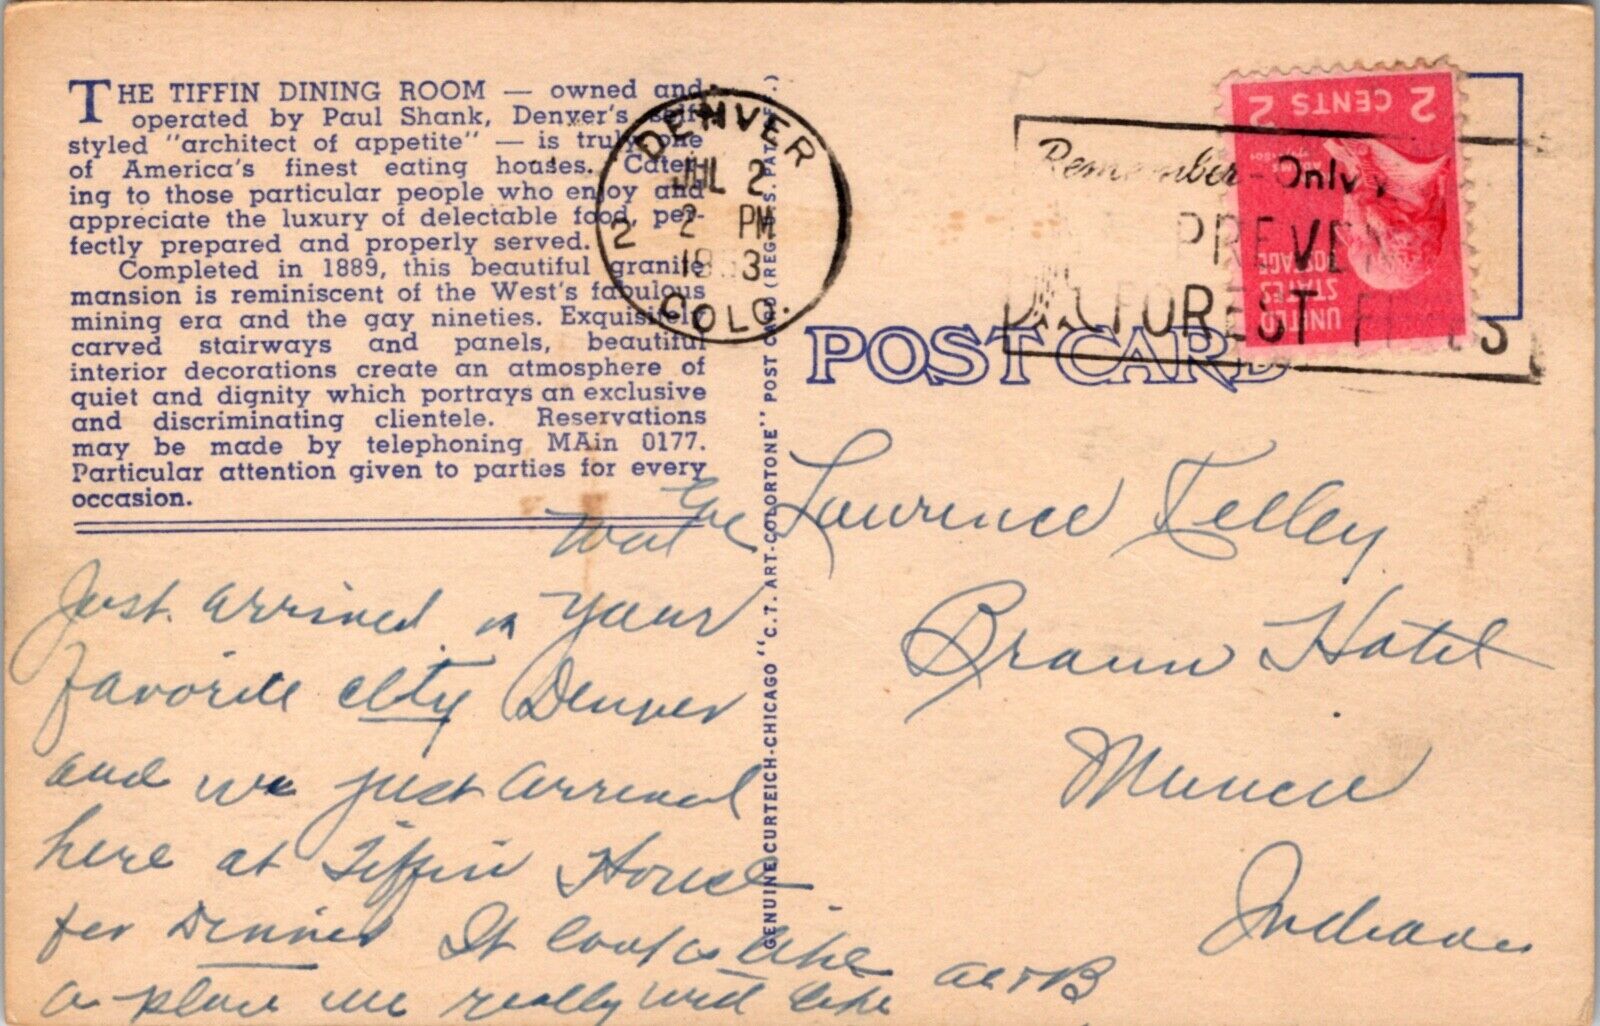 THE TIFFIN DINING ROOM — owned and
operated by Paul Shank, Denver's self
styled "architect of appetite" — is truly one
of America's finest eating houses. Cater-
ing to those particular people who enjoy and
appreciate the luxury of delectable food, per-
fectly prepared and properly served.
Completed in 1889, this beautiful granite
mansion is reminiscent of the West's fabulous
mining era and the gay nineties. Exquisitely
carved stairways and panels, beautiful
interior decorations create an atmosphere of
quiet and dignity which portrays an exclusive
and discriminating clientele. Reservations
may be made by telephoning MAin 0177.
Particular attention given to parties for every
occasion.
Just arrived in your
favorite city Denver
and we just arrived
here at Tiffin House
for Dinner It looks like
a place we really will like
Al + B
GENUINE CURTEICH-CHICAGO "C. T. ART-COLORTONE" POST CARD (REG. U.S. PAT. OFF.)
DENVER
JUL 2
2 PM
1953
2 COLO.
Remember-Only
PREVEN
FOREST FIRES
UNITED
STATES
POSTAGE
2 CENTS 2
POST CARD
Lawrence Kelley
Braun Hotel
Muncie
Indiana